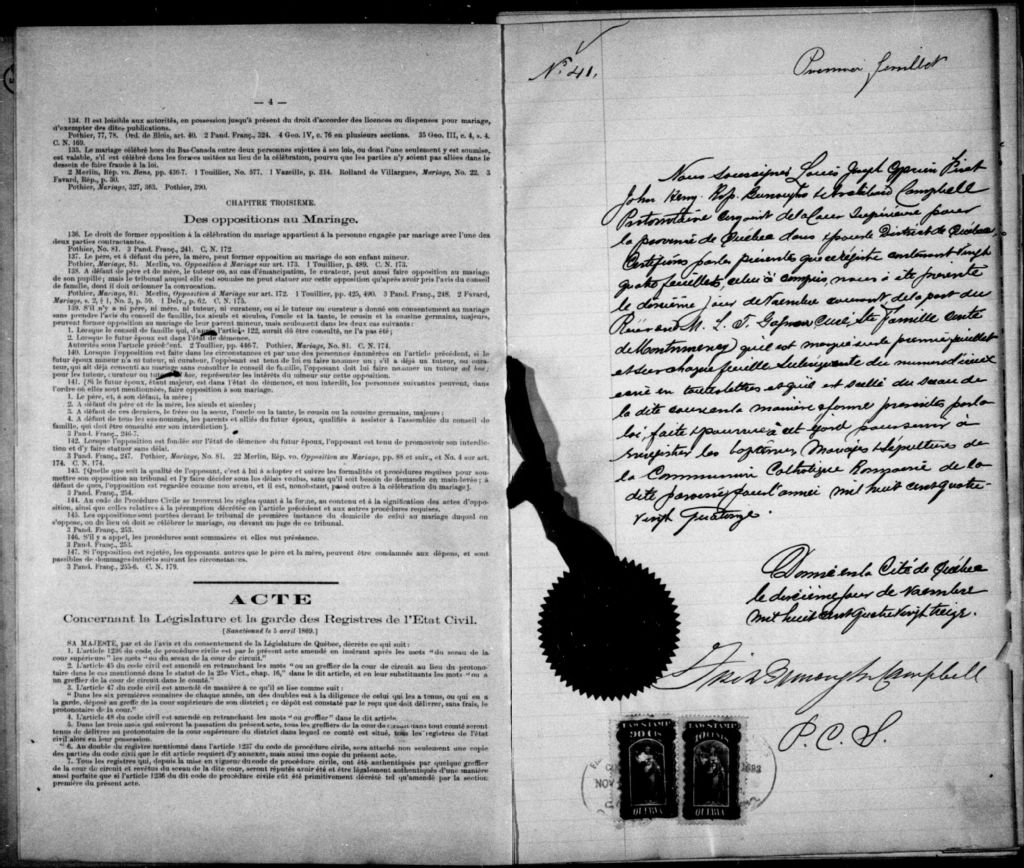 — 4 —
134. Il est loisible aux autorités, en possession jusqu'à présent du droit d'accorder des licences ou dispenses pour mariage,
d'exempter des dites publications.
Pothier, 77, 78. Ord. de Blois, art. 40. 2 Pand. Franç., 324. 4 Geo. IV, c. 76 en plusieurs sections. 35 Geo. III, c. 4, s. 4.
C. N. 169.
135. Le mariage célébré hors du Bas-Canada entre deux personnes sujettes à ses lois, ou dont l'une seulement y est soumise,
est valable, s'il est célébré dans les formes usitées au lieu de la célébration, pourvu que les parties n'y soient pas allées dans le
dessein de faire fraude à la loi.
2 Merlin, Rép. vo. Bans, pp. 436-7. 1 Touillier, No. 577. 1 Vazeille, p. 314. Rolland de Villargues, Mariage, No. 22. 3
Favard, Rép., p. 30.
Pothier, Mariage, 327, 363. Pothier, 390.
CHAPITRE TROISIÈME.
Des oppositions au Mariage.
136. Le droit de former opposition à la célébration du mariage appartient à la personne engagée par mariage avec l'une des
deux parties contractantes.
Pothier, No. 81. 3 Pand. Franç., 241. C. N. 172.
137. Le père, et à défaut du père, la mère, peut former opposition au mariage de son enfant mineur.
Pothier, Mariage, 81. Merlin, vo. Opposition à Mariage sur art. 173. 1 Touillier, p. 489. C. N. 173.
138. A défaut de père et de mère, le tuteur ou, au cas d'émancipation, le curateur, peut aussi faire opposition au mariage
de son pupille; mais le tribunal auquel elle est soumise ne peut statuer sur cette opposition qu'après avoir pris l'avis du conseil
de famille, dont il doit ordonner la convocation.
Pothier, Mariage, 81. Merlin, Opposition à Mariage sur art. 172. 1 Touillier, pp. 425, 490. 3 Pand. Franç., 248. 2 Favard,
Mariage, s. 2, § 1, No. 3, p. 59. 1 Delv., p. 62. C. N. 175.
139. S'il n'y a ni père, ni mère, ni tuteur, ni curateur, ou si le tuteur ou curateur a donné son consentement au mariage
sans prendre l'avis du conseil de famille, les aïeuls et aïeules, l'oncle et la tante, le cousin et la cousine germains, majeurs,
peuvent former opposition au mariage de leur parent mineur, mais seulement dans les deux cas suivants:
1. Lorsque le conseil de famille qui, d'après l'article 122, aurait dû être consulté, ne l'a pas été;
2. Lorsque le futur époux est dans l'état de démence.
Autorités sous l'article précédent. 2 Touillier, pp. 446-7. Pothier, Mariage, No. 81. C. N. 174.
140. Lorsque l'opposition est faite dans les circonstances et par une des personnes énumérées en l'article précédent, si le
futur époux mineur n'a ni tuteur, ni curateur, l'opposant est tenu de lui en faire nommer un; s'il a déjà un tuteur, ou curateur,
qui ait déjà consenti au mariage sans consulter le conseil de famille, l'opposant doit lui faire nommer un tuteur ad hoc;
pour les tuteur, curateur ou tuteur ad hoc, représenter les intérêts du mineur sur cette opposition.
141. [Si le futur époux, étant majeur, est dans l'état de démence, et non interdit, les personnes suivantes peuvent, dans
l'ordre où elles sont mentionnées, faire opposition à son mariage.
1. Le père, et, à son défaut, la mère;
2. A défaut du père et de la mère, les aïeuls et aïeules;
3. A défaut de ces derniers, le frère ou la sœur, l'oncle ou la tante, le cousin ou la cousine germains, majeurs;
4. A défaut de tous les sus-nommés, les parents et alliés du futur époux, qualifiés à assister à l'assemblée du conseil de
famille, qui doit être consulté sur son interdiction].
3 Pand. Franç., 246-7.
142. Lorsque l'opposition est fondée sur l'état de démence du futur époux, l'opposant est tenu de promouvoir son interdiction
et d'y faire statuer sans délai.
3 Pand. Franç., 247. Pothier, Mariage, No. 81. 22 Merlin, Rép. vo. Opposition au Mariage, pp. 88 et suiv., et No. 4 sur art.
174. C. N. 174.
143. [Quelle que soit la qualité de l'opposant, c'est à lui à adopter et suivre les formalités et procédures requises pour soumettre
son opposition au tribunal et l'y faire décider sous les délais voulus, sans qu'il soit besoin de demande en main-levée; à
défaut de quoi, l'opposition est regardée comme non avenue, et il est, nonobstant, passé outre à la célébration du mariage].
3 Pand. Franç., 254.
144. Au code de Procédure Civile se trouvent les règles quant à la forme, au contenu et à la signification des actes d'opposition,
ainsi que celles relatives à la péremption décrétée en l'article précédent et aux autres procédures requises.
145. Les oppositions sont portées devant le tribunal de première instance du domicile de celui au mariage duquel on
s'oppose, ou du lieu où doit se célébrer le mariage, ou devant un juge de ce tribunal.
3 Pand. Franç., 253.
146. S'il y a appel, les procédures sont sommaires et elles ont préséance.
3 Pand. Franç., 253.
147. Si l'opposition est rejetée, les opposants, autres que le père et la mère, peuvent être condamnés aux dépens, et sont
passibles de dommages-intérêts suivant les circonstances.
3 Pand. Franç., 255-6. C. N. 179.
ACTE
Concernant la Législature et la garde des Registres de l'Etat Civil.
[Sanctionné le 5 avril 1869.]
SA MAJESTÉ, par et de l'avis et du consentement de la Législature de Québec, décrète ce qui suit:
1. L'article 1236 du code de procédure civile est par le présent acte amendé en insérant après les mots "du sceau de la
cour supérieure" les mots "ou du sceau de la cour de circuit."
2. L'article 45 du code civil est amendé en retranchant les mots "ou au greffier de la cour de circuit au lieu du protonotaire
dans le cas mentionné dans le statut de la 25e Vict., chap. 16," dans le dit article, et en leur substituants les mots "ou a
un greffier de la cour de circuit dans le comté."
3. L'article 47 du code civil est amendé de manière à ce qu'il se lise comme suit:
"Dans les six premières semaines de chaque année, un des doubles est à la diligence de celui qui les a tenus, ou qui en a
la garde, déposé au greffe de la cour supérieure de son district; ce dépôt est constaté par le reçu que doit délivrer, sans frais, le
protonotaire de la cour."
4. L'article 48 du code civil est amendé en retranchant les mots "ou greffier" dans le dit article.
5. Dans les trois mois qui suivront la passation du présent acte, tous les greffiers de la cour de circuit dans tout comté seront
tenus de délivrer au protonotaire de la cour supérieure du district dans lequel ce comté est situé, tous les registres de l'état
civil alors en leur possession.
6. Au double du registre mentionné dans l'article 1237 du code de procédure civile, sera attaché non seulement une copie
des parties du code civil que le dit article requiert d'y annexer, mais aussi une copie du présent acte.
7. Tous les registres qui, depuis la mise en vigueur du code de procédure civile, ont été authentiqués par quelque greffier
de la cour de circuit et revêtus du sceau de la dite cour, seront réputés avoir été et être légalement authentiqués d'une manière
aussi parfaite que si l'article 1236 du dit code de procédure civile eût été primitivement décrété tel qu'amendé par la section
première du présent acte.
No. 41.
Premier feuillet
Nous soussignés Louis Joseph Cyprien Fiset
John Henry Rop. Burroughs & Archibald Campbell
Protonotaire conjoint de la Cour Supérieure pour
la province de Québec dans & pour le District de Québec,
Certifions par les presentes que ce registre contenant vingt
quatre feuillets, celui ci compris, nous a été presenté
le dixième jour de Novembre courant, de la part du
Révérend M. L. T. Gagnon Curé, Ste Famille comté
de Montmorency qu'il est marqué sur le premier feuillet
et sur chaque feuillet subséquent du numero d'iceux
écrit en toutes lettres et qu'il est scellé du sceau de
la dite cour en la manière & forme prescrites par la
loi, faite & pourvue à cet égard pour servir à
enregistrer les baptêmes, Mariages & Sépultures de
la Communion Catholique Romaine de la
dite paroisse pour l'année mil huit cent quatre
vingt quatorze.
Donné en la Cité de Québec
le dixième jour de Novembre
mil huit cent quatre vingt treize.
Fiset Burroughs Campbell
P. C. S.
LAW STAMP
90 CTS
QUEBEC
LAW STAMP
10 CENTS
QUEBEC
NOV